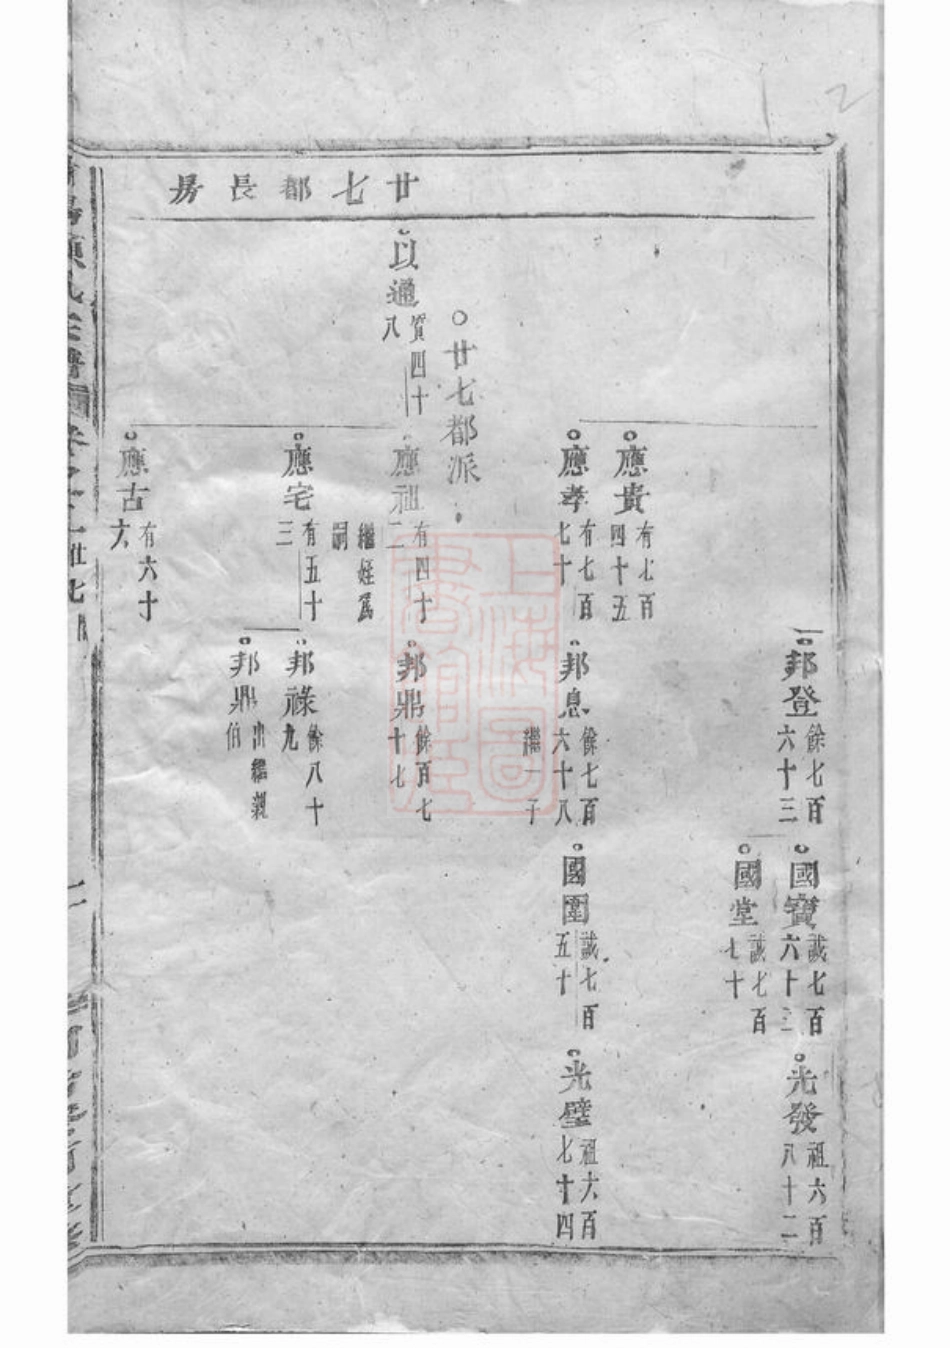 廿七都長房
邦登
餘七百
六十三
國寶
誠七百
六十三
光發
祖六百
八十二
國堂
誠七百
七十
應貴
有七百
四十五
應孝
有七百
七十
邦息
餘七百
六十八
繼一子
國圍
誠七百
五十
光璧
祖六百
七十四
廿七都派
以通
質四十
八
應祖
有四十
二
繼姪爲
嗣
邦鼎
餘百七
十七
應宅
有五十
三
邦祿
餘八十
九
邦鼎
出繼親
伯
應古
有六十
六
上海圖
書館藏